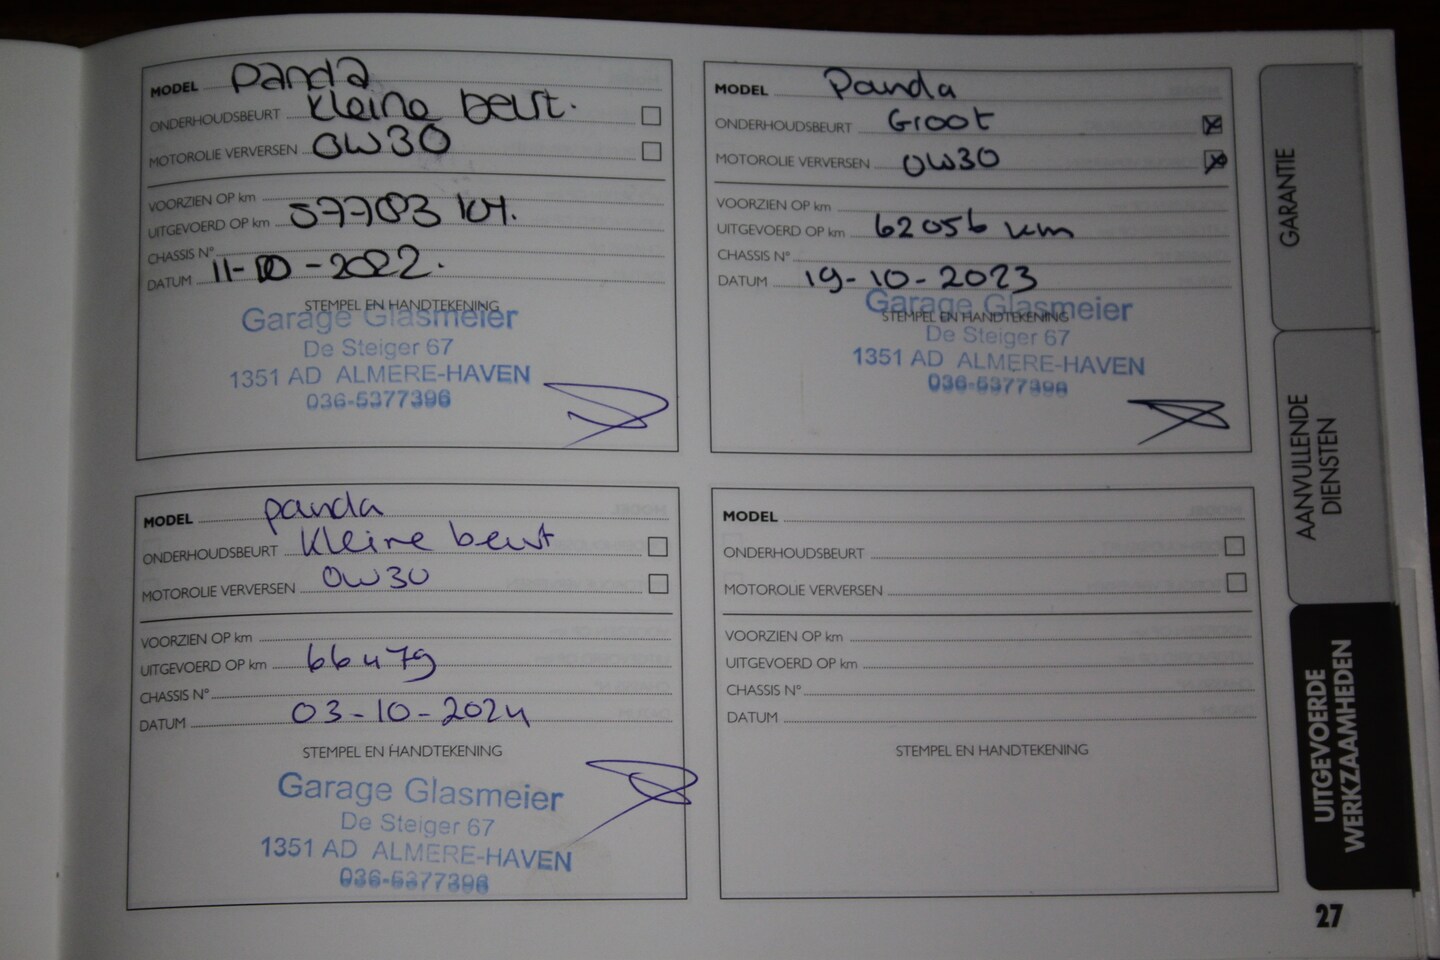 MODEL Panda
ONDERHOUDSBEURT kleine beurt.
MOTOROLIE VERVERSEN 0W30
VOORZIEN OP km
UITGEVOERD OP km 57783 km.
CHASSIS N°
DATUM 11-10-2022.
STEMPEL EN HANDTEKENING
Garage Glasmeier
De Steiger 67
1351 AD ALMERE-HAVEN
036-5377396
MODEL Panda
ONDERHOUDSBEURT Groot
MOTOROLIE VERVERSEN 0W30
VOORZIEN OP km
UITGEVOERD OP km 62056 km
CHASSIS N°
DATUM 19-10-2023
STEMPEL EN HANDTEKENING
Garage Glasmeier
De Steiger 67
1351 AD ALMERE-HAVEN
036-5377396
MODEL panda
ONDERHOUDSBEURT kleine beurt
MOTOROLIE VERVERSEN 0W30
VOORZIEN OP km
UITGEVOERD OP km 66479
CHASSIS N°
DATUM 03-10-2024
STEMPEL EN HANDTEKENING
Garage Glasmeier
De Steiger 67
1351 AD ALMERE-HAVEN
036-5377396
MODEL
ONDERHOUDSBEURT
MOTOROLIE VERVERSEN
VOORZIEN OP km
UITGEVOERD OP km
CHASSIS N°
DATUM
STEMPEL EN HANDTEKENING
GARANTIE
AANVULLENDE
DIENSTEN
UITGEVOERDE
WERKZAAMHEDEN
27